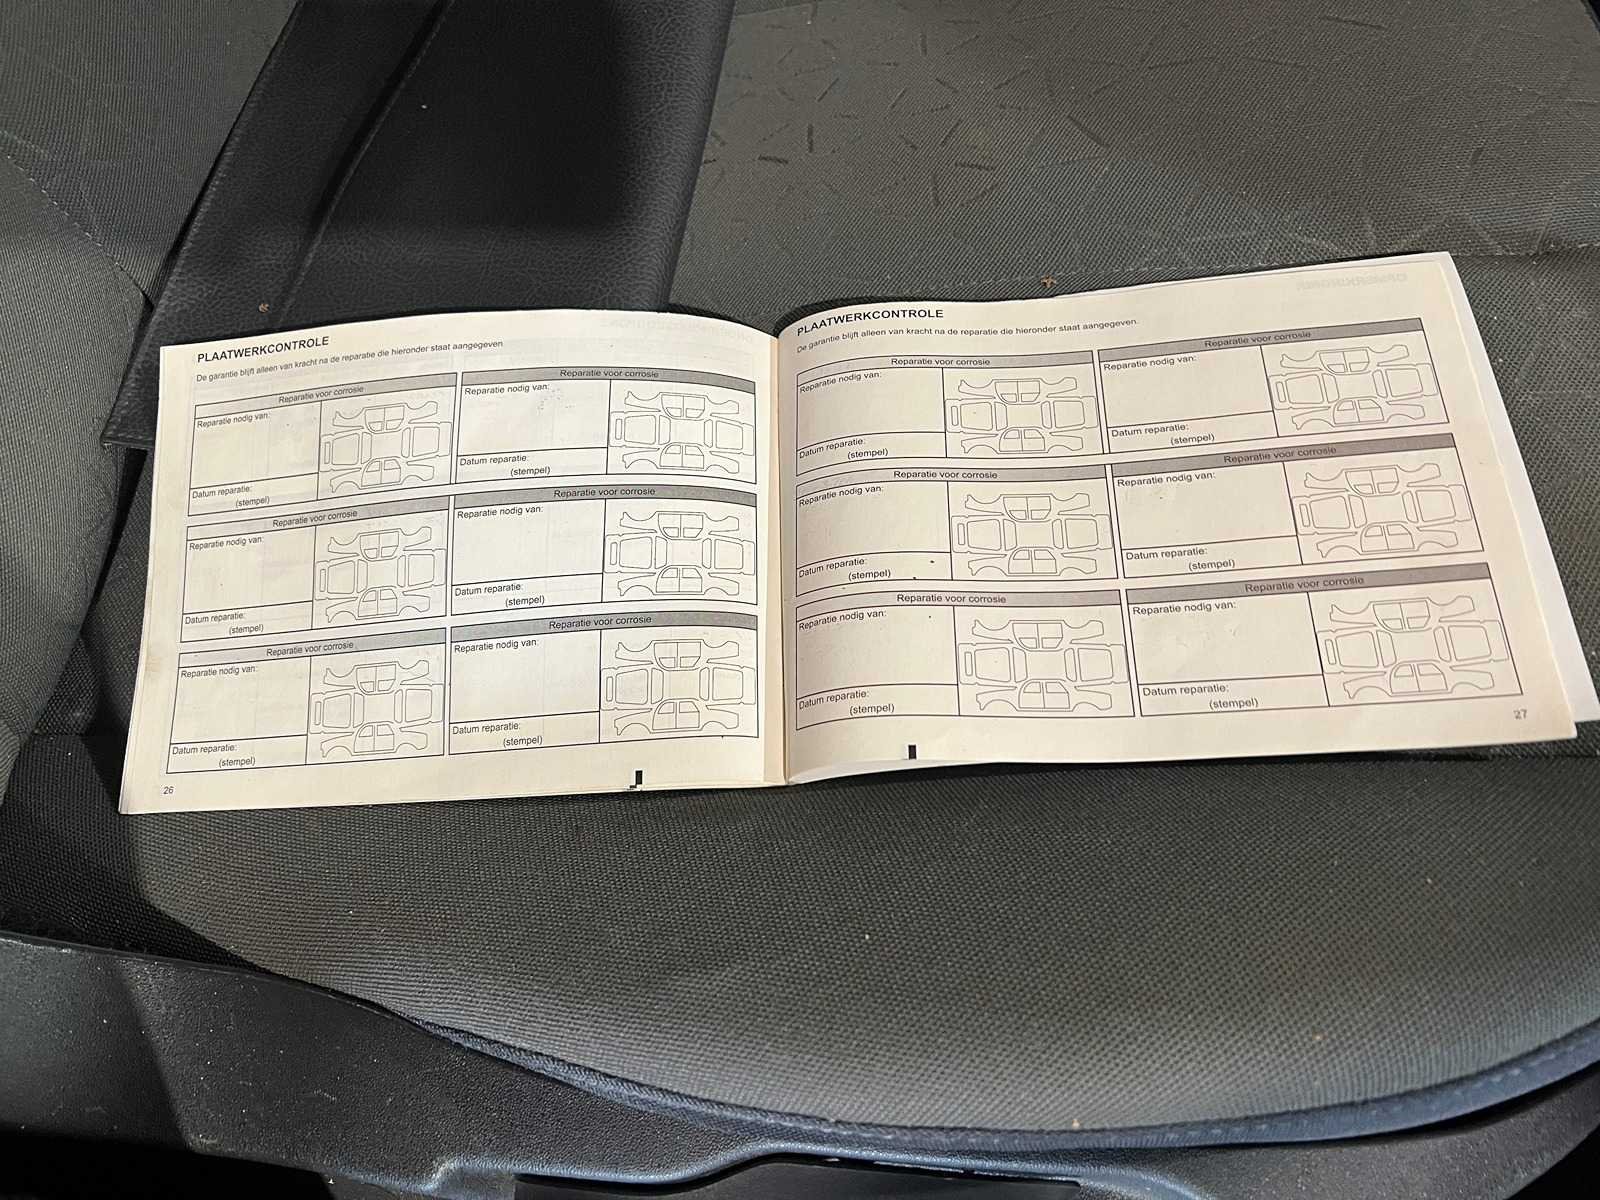 PLAATWERKCONTROLE
De garantie blijft alleen van kracht na de reparatie die hieronder staat aangegeven.
Reparatie voor corrosie
Reparatie nodig van:
Datum reparatie:
(stempel)
Reparatie voor corrosie
Reparatie nodig van:
Datum reparatie:
(stempel)
Reparatie voor corrosie
Reparatie nodig van:
Datum reparatie:
(stempel)
Reparatie voor corrosie
Reparatie nodig van:
Datum reparatie:
(stempel)
Reparatie voor corrosie
Reparatie nodig van:
Datum reparatie:
(stempel)
Reparatie voor corrosie
Reparatie nodig van:
Datum reparatie:
(stempel)
26
PLAATWERKCONTROLE
De garantie blijft alleen van kracht na de reparatie die hieronder staat aangegeven.
Reparatie voor corrosie
Reparatie nodig van:
Datum reparatie:
(stempel)
Reparatie voor corrosie
Reparatie nodig van:
Datum reparatie:
(stempel)
Reparatie voor corrosie
Reparatie nodig van:
Datum reparatie:
(stempel)
Reparatie voor corrosie
Reparatie nodig van:
Datum reparatie:
(stempel)
Reparatie voor corrosie
Reparatie nodig van:
Datum reparatie:
(stempel)
Reparatie voor corrosie
Reparatie nodig van:
Datum reparatie:
(stempel)
27